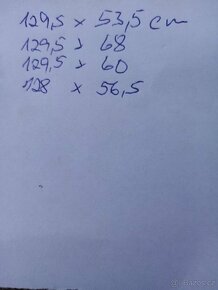 129,5 x 53,5 cm
129,5 x 68
129,5 x 60
128 x 56,5